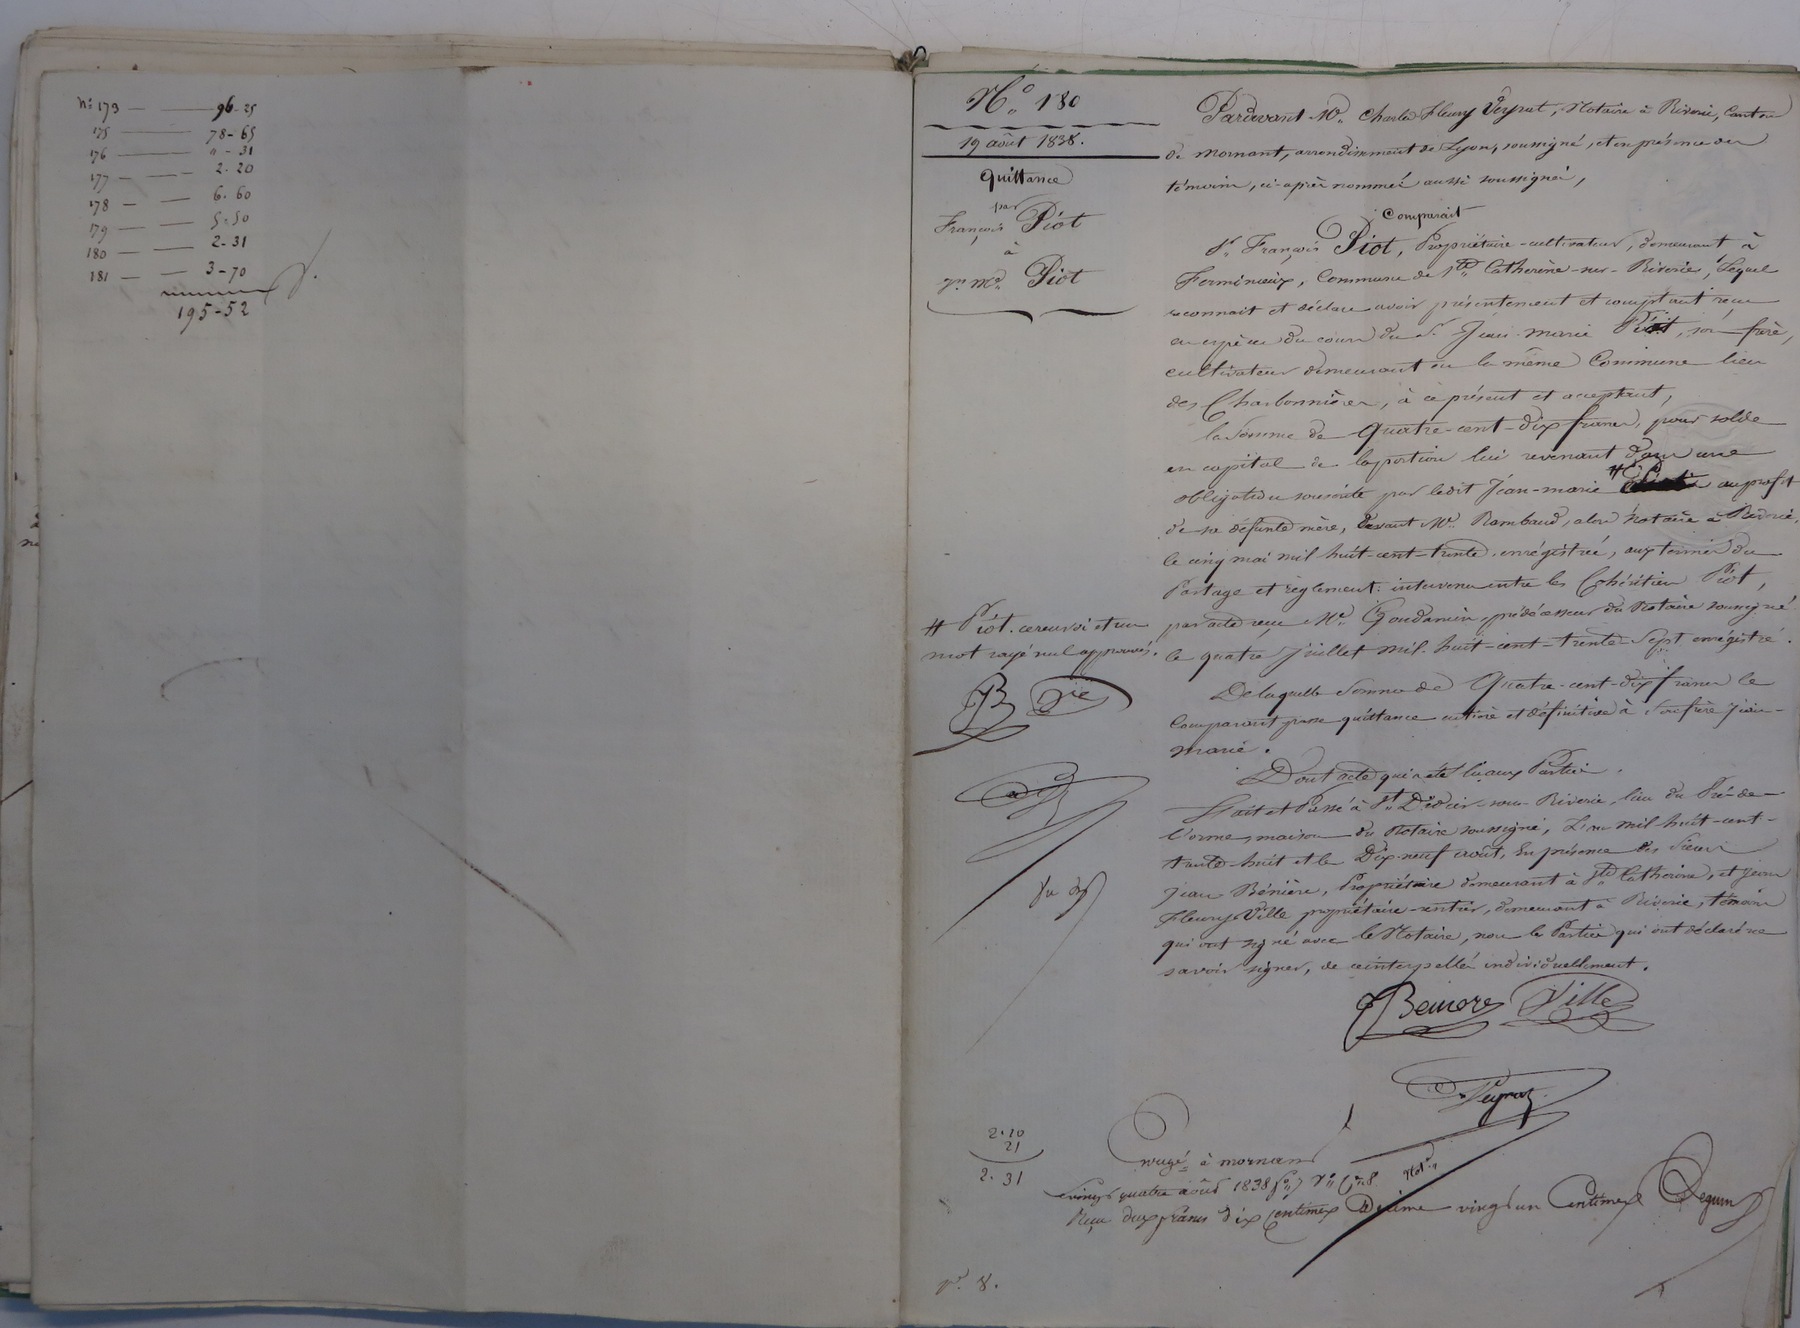 N° 173 — — 96-25
175 — 78-65
176 — " - 31
177 — — 2. 20
178 — — 6. 60
179 — — 5-50
180 — — 2-31
181 — — 3-70
195-52
N° 180
19 août 1838.
Quittance
par
François Piot
à
Jn. Mie. Piot
# Piot. ce renvoi et un
mot rayé nul approuvés.
JB Vie
Pardevant Me. Charles Fleury Veyrat, Notaire à Riverie, Canton
de Mornant, arrondissement de Lyon, soussigné, et en présence des
témoins, ci-après nommés aussi soussignés,
Comparait
Sr. François Piot, Propriétaire-cultivateur, demeurant à
Commune de Ste. Catherine-sur-Riverie, Lequel
reconnait et déclare avoir présentement et comptant reçu
en espèces du cours du Sr. Jean-Marie Piot, son frère,
cultivateur demeurant en la même Commune lieu
des Charbonnières, à ce présent et acceptant,
la Somme de Quatre-cent-dix francs, pour solde
en capital de la portion lui revenant dans une
obligation souscrite par ledit Jean-marie # au profit
de sa défunte mère, devant Me. Rambaud, alors Notaire à Riverie,
le cinq mai mil huit-cent-trente enrégistrée, aux termes du
Partage et règlement intervenu entre les Cohéritiers Piot,
par acte reçu Me. prédécesseur du Notaire soussigné
le quatre Juillet mil-huit-cent-trente Sept enrégistré.
De laquelle Somme de Quatre-cent-dix francs le
Comparant passe quittance entière et définitive à son frère Jean-
marie.
Dont acte qui a été lu aux Parties.
Fait et Passé à St. Didier-sous-Riverie, lieu du Pré-de-
l'orme, maison du Notaire soussigné, L'an mil-huit-cent-
trente-huit et le Dix-neuf août, En présence des Sieurs
Jean Bénière, Propriétaire demeurant à Ste. Catherine, et Jean
Fleury Ville propriétaire-rentier, demeurant à Riverie, témoins
qui ont signé avec le Notaire, non les Parties qui ont déclaré ne
savoir signer, de ce interpellés individuellement.
JBeniere Ville
Veyrat
Not.re
2.10
21
2.31
Enregé. à mornant
vingt quatre août 1838 fo. 7 Vo. Ce. 8.
Reçu deux francs dix Centimes Décime vingt un Centimes Seguin